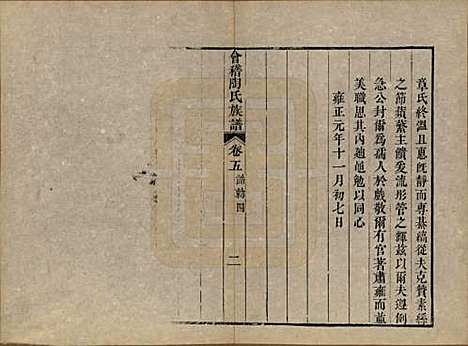 章氏終溫且惠旣靜而專綦縞從夫克贊素絲
之節蘋蘩主饋爰流彤管之輝茲以爾夫遵例
急公封爾爲孺人於戲敬爾有官著肅雍而並
美職思其內迪黽勉以同心
雍正元年十一月初七日
會稽陶氏族譜
卷五 誥勅四
二